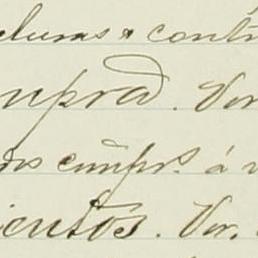 cluras & contr
mprad. Ver
os cumpr. á v
ientos. Ver.